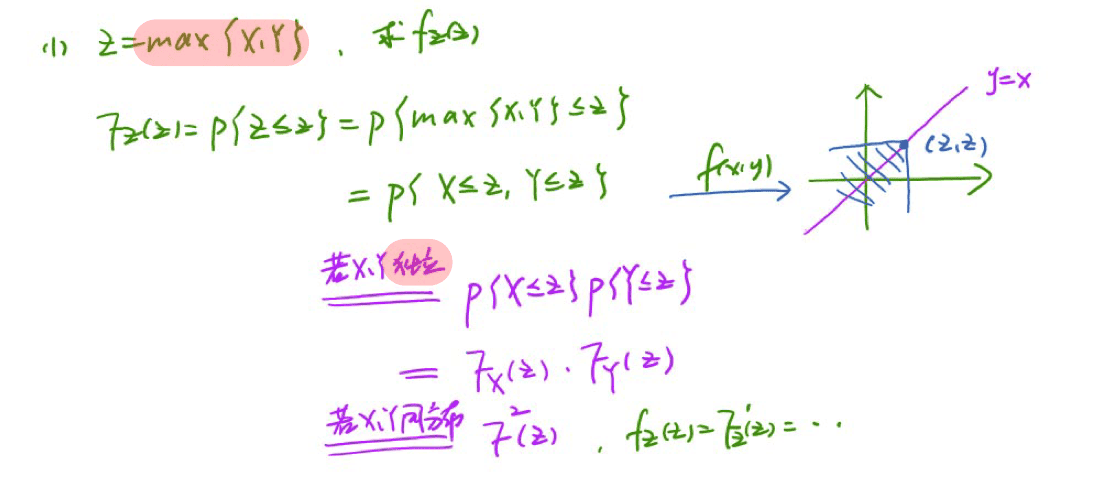 (1) Z=max{X,Y}, 求f_Z(z)
F_Z(z)=P{Z≤z}=P{max{X,Y}≤z}
=P{X≤z,Y≤z}
f(x,y)
y=x
(z,z)
若X,Y独立 P{X≤z}P{Y≤z}
=F_X(z)·F_Y(z)
若X,Y同分布 F²(z), f_Z(z)=F_Z'(z)=···